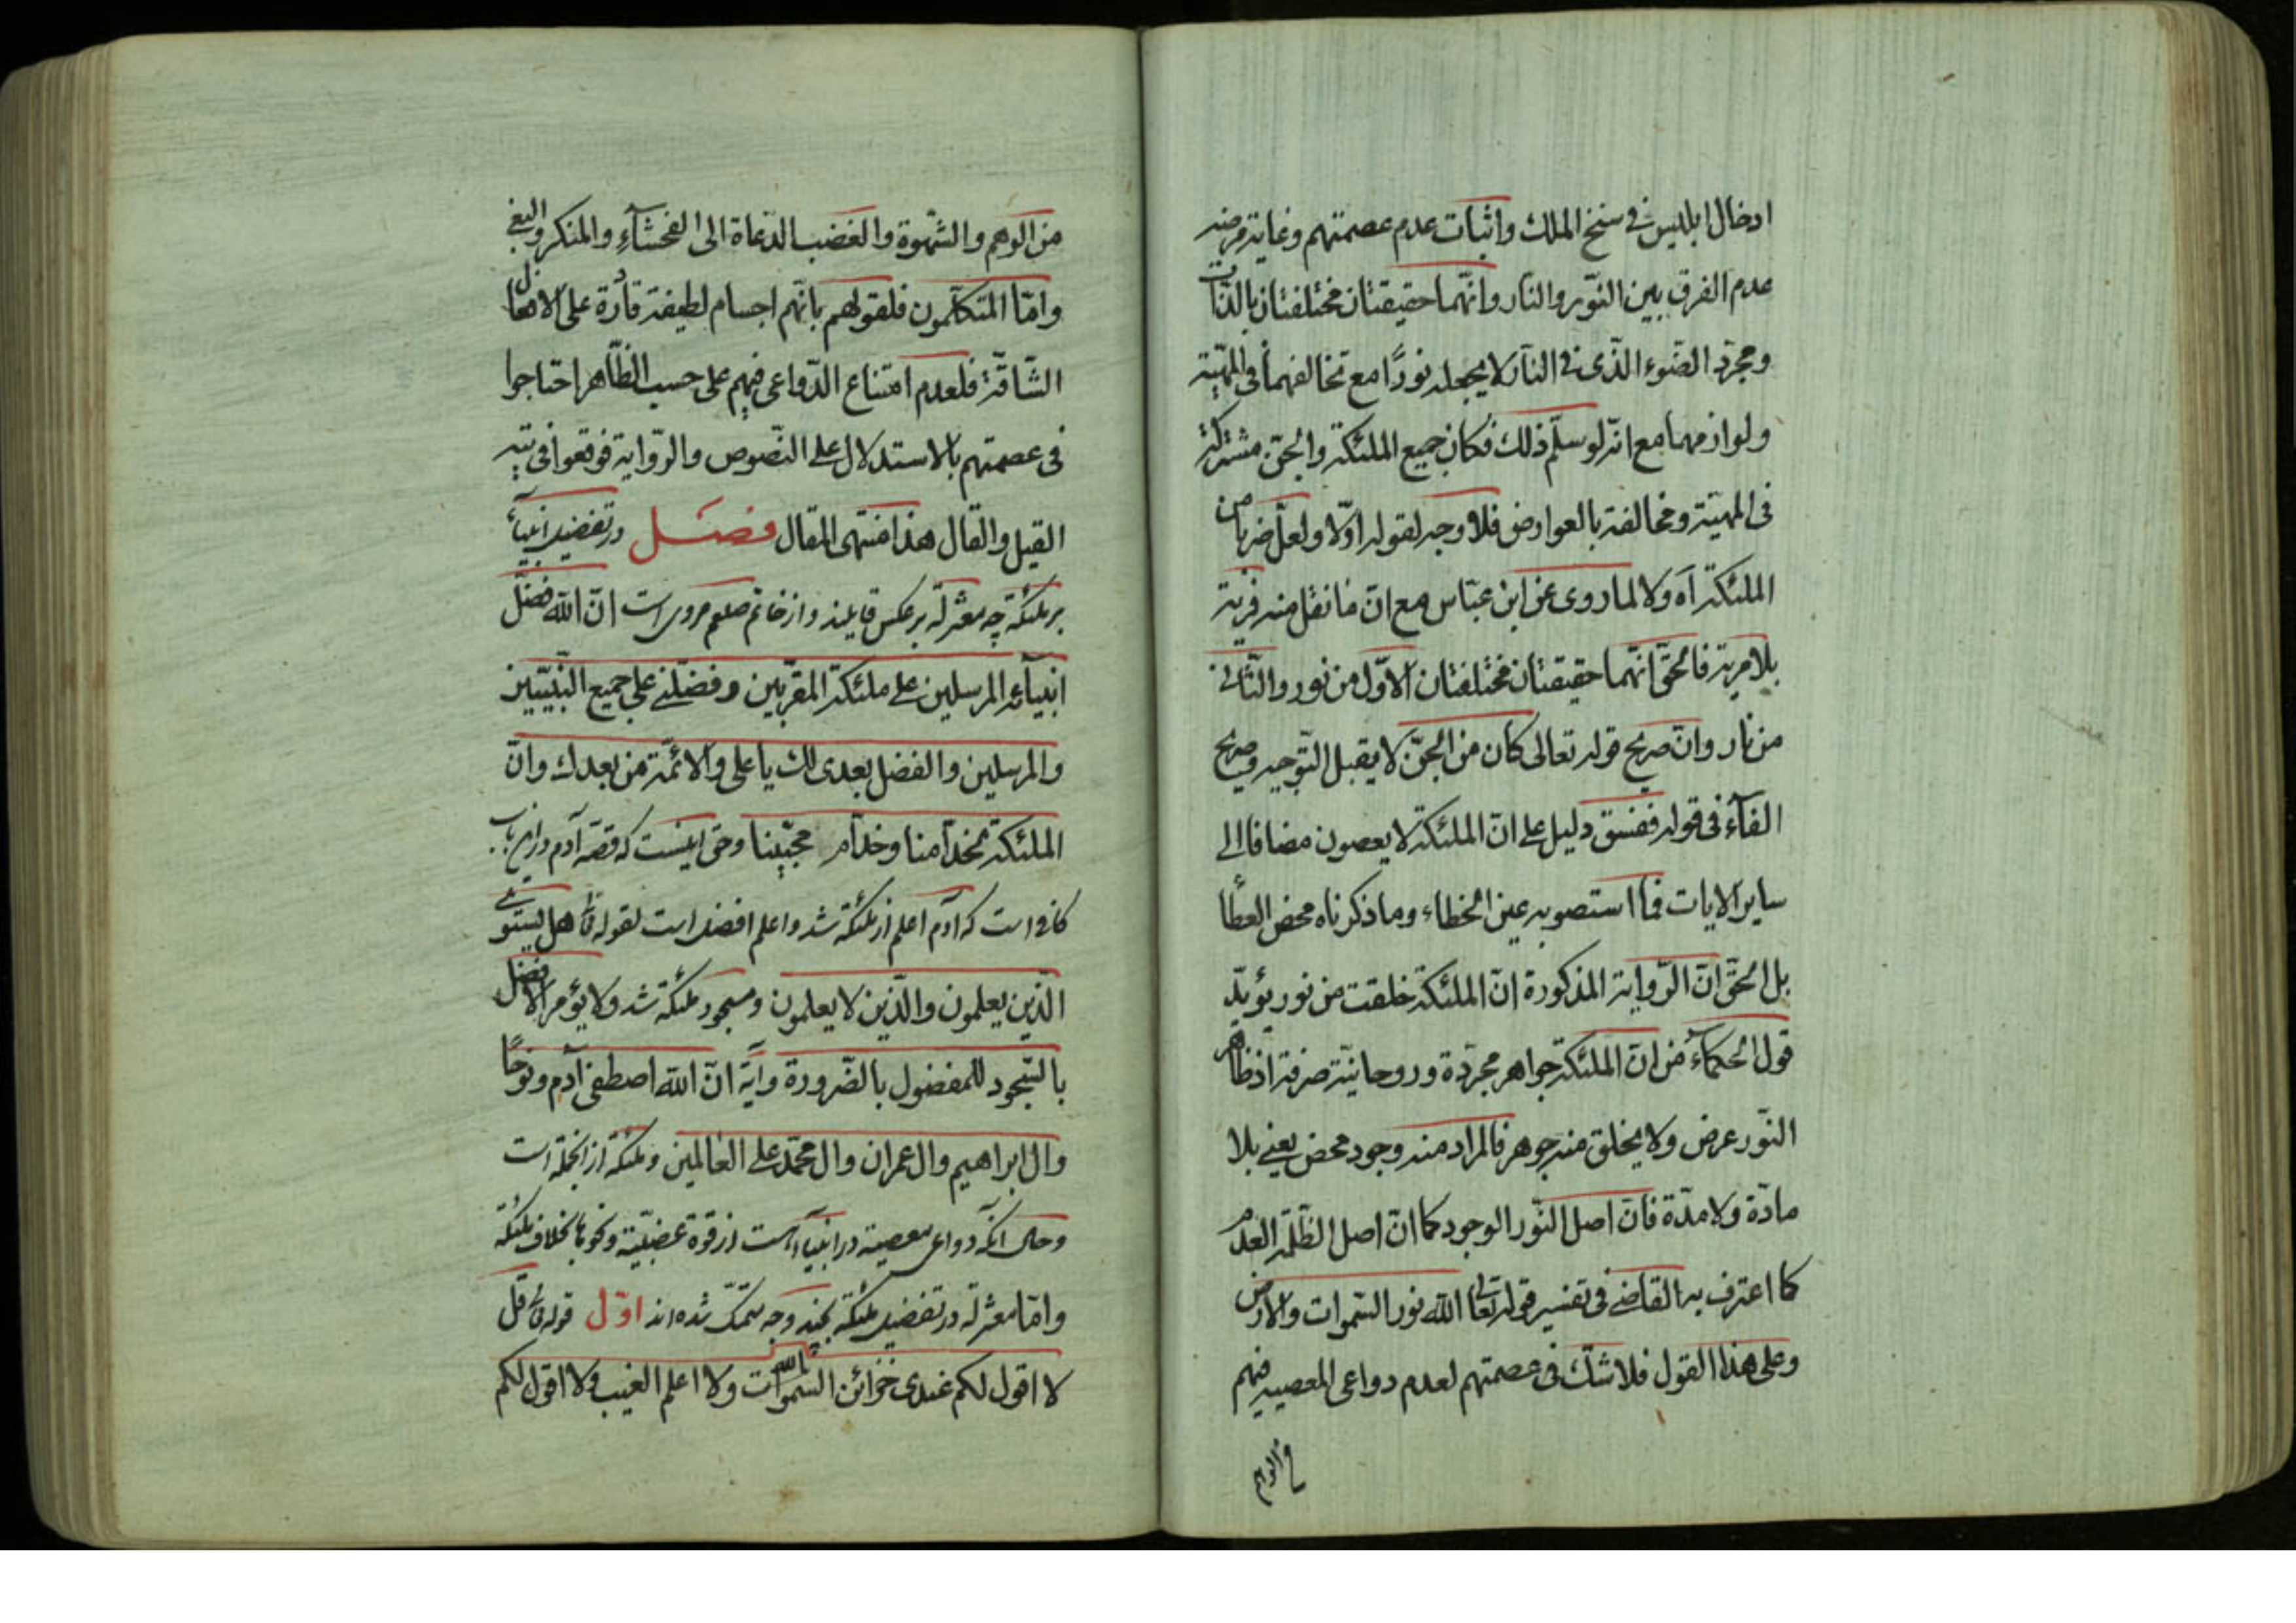 ادخال ابلیس فی سنخ الملک واثبات عدم عصمتهم وغایة فرضه
عدم الفرق بین النّور والنار وانّهما حقیقتان مختلفتان بالذّات
ومجرّد الضّوء الّذی فی النّار لا یجعله نورًا مع تخالفهما فی المهیّة
ولوازمهما مع انّه لو سلّم ذلک فکان جمیع الملئکة والجنّ مشترکة
فی المهیّة ومخالفة بالعوارض فلا وجه لقوله اوّلا ولعلّ ضربا من
الملئکة آه ولا لما روی عن ابن عبّاس مع انّ ما نقل منه فریة
بلا مریة فالحقّ انّهما حقیقتان مختلفتان الاوّل من نور والثّانی
من نار وانّ صریح قوله تعالی کان من الجنّ لا یقبل التّوجیه وصریح
الفآء فی قوله ففسق دلیل علی انّ الملئکة لا یعصون مضافا الی
سایر الایات فما استصوبه عین الخطاء وما ذکرناه محض العطآ
بل الحقّ انّ الرّوایة المذکورة انّ الملئکة خلقت من نور یؤیّد
قول الحکمآء من انّ الملئکة جواهر مجرّدة وروحانیّة صرفة اذ ظاهر
النّور عرض ولا یخلق منه جوهر فالمراد منه وجود محض یعنی بلا
مادّة ولا مدّة فانّ اصل النّور الوجود کما انّ اصل الظّلمة العدم
کما اعترف به القاضی فی تفسیر قوله تعالی الله نور السّموات والارض
وعلی هذا القول فلا شکّ فی عصمتهم لعدم دواعی المعصیة فیهم
من الوهم
من الوهم والشّهوة والغضب الدّعاة الی الفحشآء والمنکر والبغی
وامّا المتکلّمون فلقولهم بانّهم اجسام لطیفة قادرة علی الافعال
الشّاقّة فلعدم امتناع الدّواعی فیهم علی حسب الظّاهر احتاجوا
فی عصمتهم بالاستدلال علی النّصوص والرّوایة فوقعوا فی تیه
القیل والقال هذا منتهی المقال فصل در تفضیل انبیآء
بر ملئکة چه معتزله برعکس قایلند واز خاتم صلعم مروی است انّ الله فضّل
انبیآئه المرسلین علی ملئکته المقرّبین وفضّلنی علی جمیع النّبیّین
والمرسلین والفضل بعدی لک یا علی والائمّة من بعدک وانّ
الملئکة لخدّامنا وخدّام محبّینا وحق اینست که قصّه آدم در این باب
کافی است که آدم اعلم از ملئکة شد واعلم افضل است لقوله تع هل یستوی
الّذین یعلمون والّذین لا یعلمون ومسجود ملئکة شد ولا یؤمر الافضل
بالسّجود للمفضول بالضّرورة وآیة انّ الله اصطفی آدم ونوحًا
وال ابراهیم وال عمران وال محمّد علی العالمین وملئکة از انجمله است
وحال آنکه دواعی معصیة در انبیآء است از قوّة غضبیّة ونحوها بخلاف ملئکة
وامّا معتزله در تفضیل ملئکة بچند وجه متمسّک شده اند اوّل قوله تع قل
لا اقول لکم عندی خزائن السّموات الله ولا اعلم الغیب ولا اقول لکم